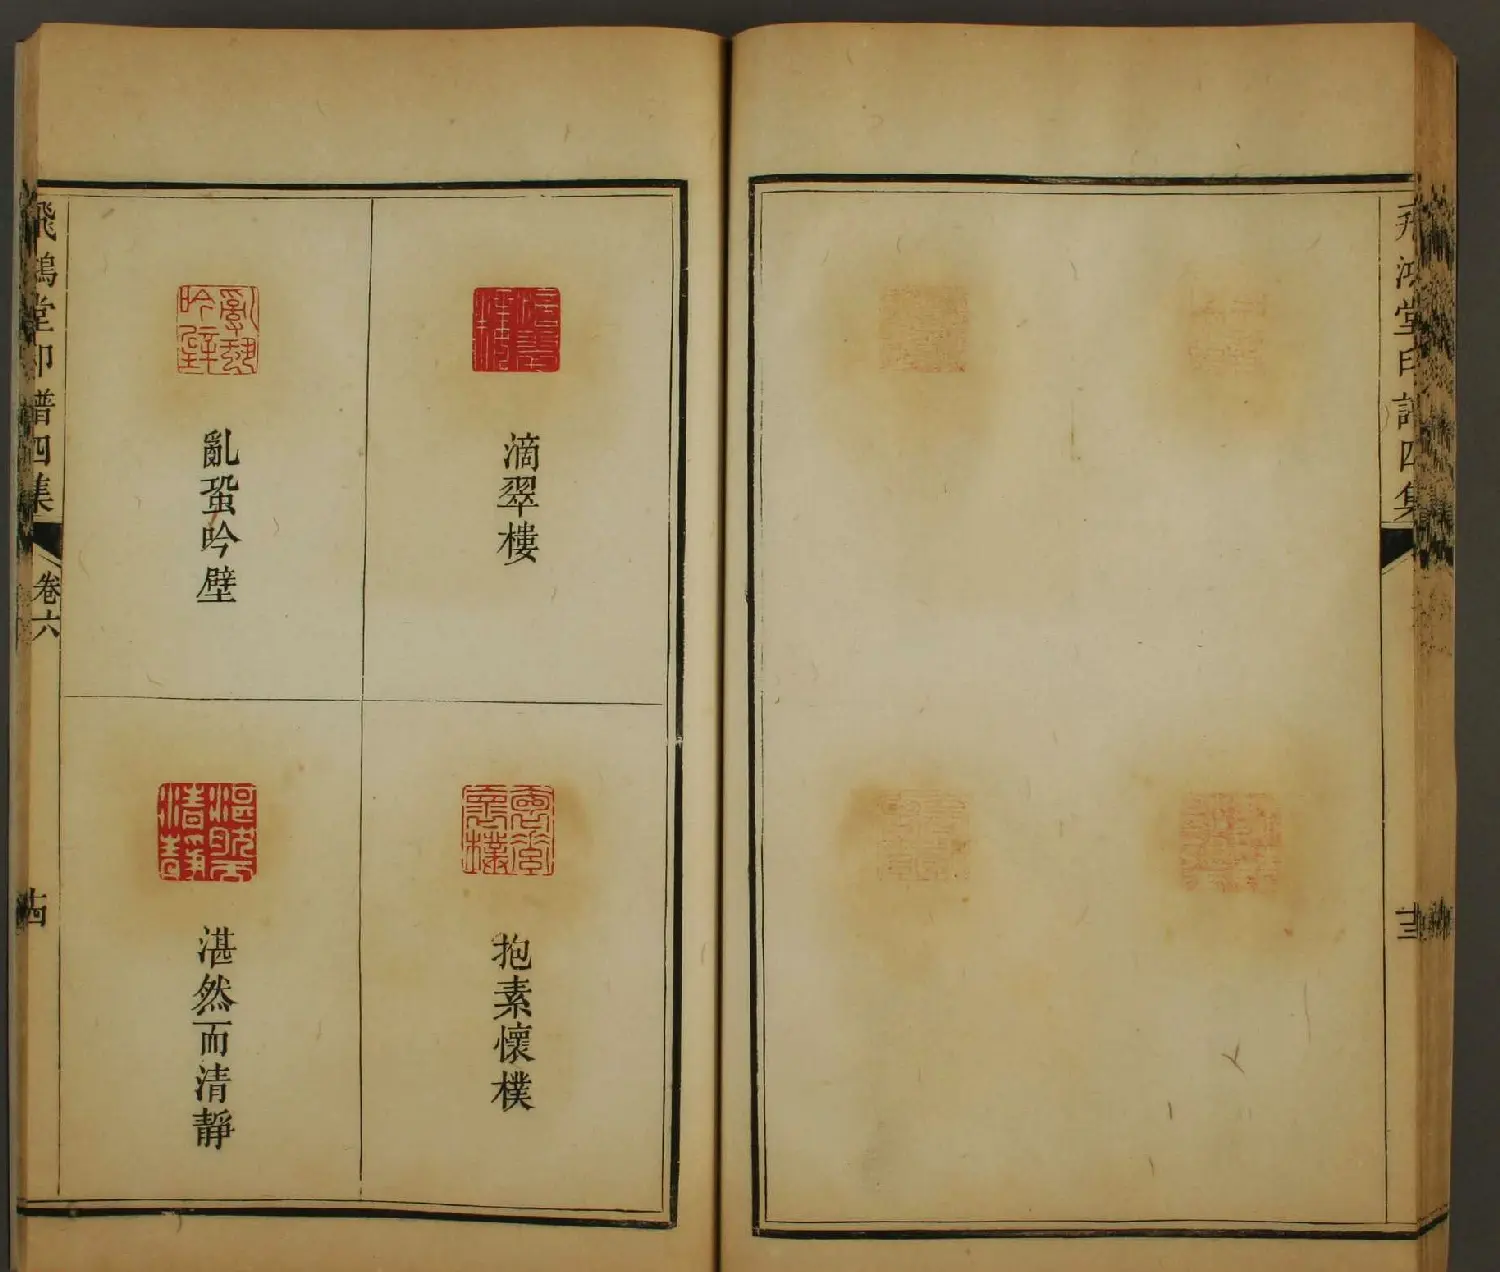 飛鴻堂印譜四集
十三
滴翠樓
抱素懷樸
亂蛩吟壁
湛然而清靜
飛鴻堂印譜四集
卷六
十四